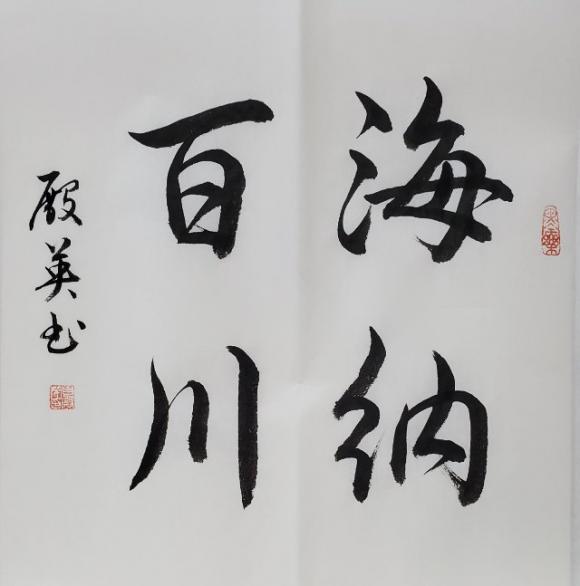 海纳
百川
殷英书